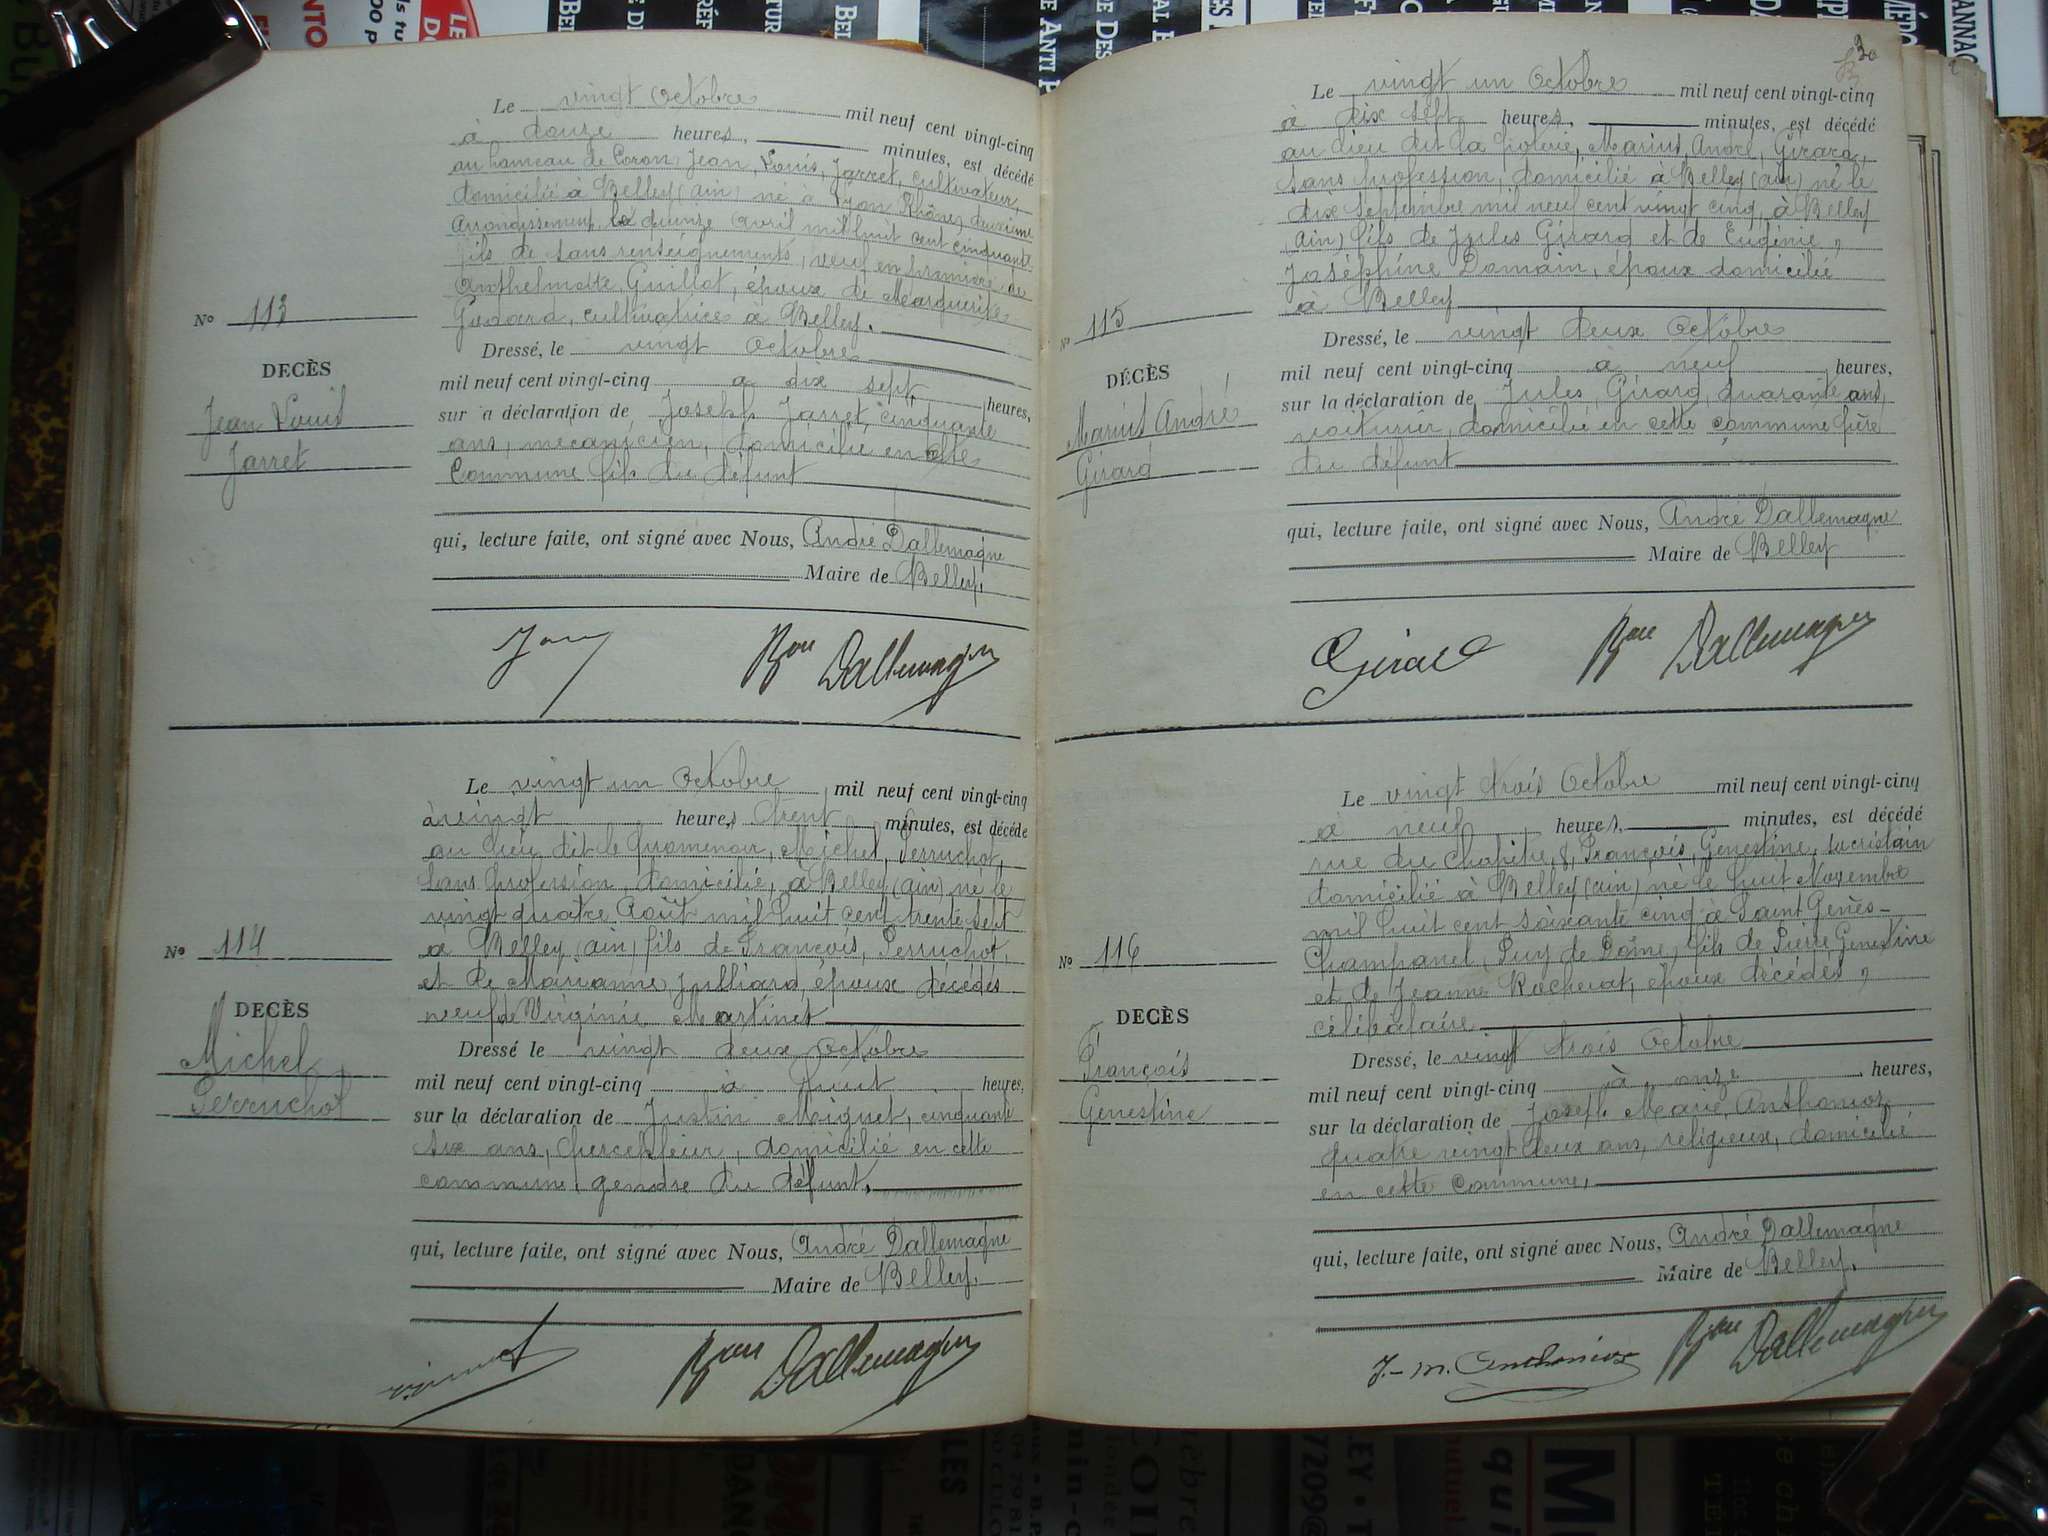 Le vingt Octobre mil neuf cent vingt-cinq
à douze heures, minutes, est décédé
au hameau de Coron, Jean, Louis, Jarret, cultivateur,
domicilié à Belley (ain) né à Lyon Rhône, deuxième
arrondissement, le quinze avril mil huit cent cinquante
fils de sans renseignements, veuf en première de
Anthelmette Guillot, époux de Marguerite
cultivatrice à Belley.
Nº 113
DECÈS
Jean Louis
Jarret
Dressé, le vingt Octobre
mil neuf cent vingt-cinq à dix sept heures,
sur a déclaration de Joseph Jarret, cinquante
ans, mécanicien, domicilié en cette
Commune fils du défunt
qui, lecture faite, ont signé avec Nous, André Dallemagne
Maire de Belley.
Bon Dallemagne
Le vingt un Octobre mil neuf cent vingt-cinq
à vingt heures trent minutes, est décédé
au lieu dit le Promenoir, Michel, Perruchot,
sans profession, domicilié, à Belley (ain) né le
vingt quatre Août mil huit cent trente sept
à Belley (ain) fils de François, Perruchot,
et de Marianne Julliard, époux décédés
veuf de Virginie Martinet
Nº 114
DECÈS
Michel
Perruchot
Dressé le vingt deux Octobre
mil neuf cent vingt-cinq à huit heures,
sur la déclaration de Justin Miguet, cinquante
six ans, percepteur, domicilié en cette
commune, gendre du défunt.
qui, lecture faite, ont signé avec Nous, André Dallemagne
Maire de Belley.
Bon Dallemagne
Le vingt un Octobre mil neuf cent vingt-cinq
à dix sept heures, minutes, est décédé
au lieu dit la Poterie, Marius, André, Girard,
sans profession, domicilié à Belley (ain) né le
dix Septembre mil neuf cent vingt cinq, à Belley
(ain) fils de Jules Girard et de Eugénie,
Joséphine Domain, époux domicilié
à Belley
Nº 115
DÉCÈS
Marius André
Girard
Dressé, le vingt deux Octobre
mil neuf cent vingt-cinq à neuf heures,
sur la déclaration de Jules Girard, quarante ans,
voiturier, domicilié en cette commune père
du défunt
qui, lecture faite, ont signé avec Nous, André Dallemagne
Maire de Belley
Girard Bon Dallemagne
Le vingt trois Octobre mil neuf cent vingt-cinq
à neuf heures, minutes, est décédé
rue du Chapitre, 8, François, Genestine, sacristain
domicilié à Belley (ain) né le huit Novembre
mil huit cent soixante cinq à Saint Genès-
Champanel, Puy de Dôme, fils de Pierre Genestine
et de Jeanne Rocherat, époux décédés,
célibataire
Nº 116
DECÈS
François
Genestine
Dressé, le vingt trois Octobre
mil neuf cent vingt-cinq à onze heures,
sur la déclaration de Joseph Marie Anthonioz
quatre vingt deux ans, religieux, domicilié
en cette commune,
qui, lecture faite, ont signé avec Nous, André Dallemagne
Maire de Belley.
J.-M. Anthonioz Bon Dallemagne